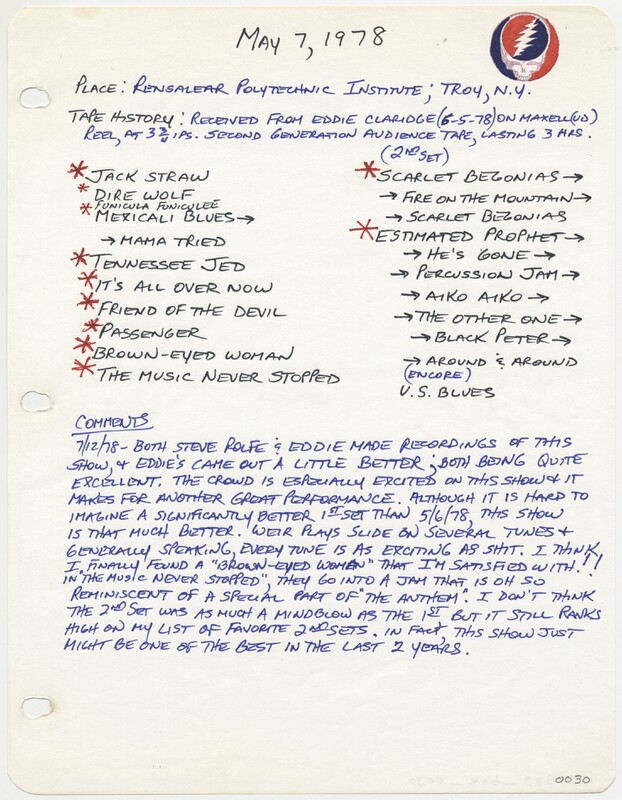 MAY 7, 1978
PLACE: RENSALEAR POLYTECHNIC INSTITUTE; TROY, N.Y.
TAPE HISTORY: RECEIVED FROM EDDIE CLARIDGE (6-5-78) ON MAXELL (UD)
REEL, AT 3 3/4 IPS. SECOND GENERATION AUDIENCE TAPE, LASTING 3 HRS.
*JACK STRAW
*DIRE WOLF
FUNICULA FUNICULEE
*MEXICALI BLUES→
→MAMA TRIED
*TENNESSEE JED
*IT'S ALL OVER NOW
*FRIEND OF THE DEVIL
*PASSENGER
*BROWN-EYED WOMAN
*THE MUSIC NEVER STOPPED
(2ND SET)
*SCARLET BEGONIAS→
→FIRE ON THE MOUNTAIN→
→SCARLET BEGONIAS
*ESTIMATED PROPHET→
→HE'S GONE→
→PERCUSSION JAM→
→AIKO AIKO→
→THE OTHER ONE→
→BLACK PETER→
→AROUND & AROUND
(ENCORE)
U.S. BLUES
COMMENTS
7/12/78- BOTH STEVE ROLFE & EDDIE MADE RECORDINGS OF THIS
SHOW, & EDDIE'S CAME OUT A LITTLE BETTER; BOTH BEING QUITE
EXCELLENT. THE CROWD IS ESPECIALLY EXCITED ON THIS SHOW & IT
MAKES FOR ANOTHER GREAT PERFORMANCE. ALTHOUGH IT IS HARD TO
IMAGINE A SIGNIFICANTLY BETTER 1ST SET THAN 5/6/78, THIS SHOW
IS THAT MUCH BETTER. WEIR PLAYS SLIDE ON SEVERAL TUNES &
GENERALLY SPEAKING, EVERY TUNE IS AS EXCITING AS SHIT. I THINK
I FINALLY FOUND A "BROWN-EYED WOMAN" THAT I'M SATISFIED WITH.!!
IN "THE MUSIC NEVER STOPPED", THEY GO INTO A JAM THAT IS OH SO
REMINISCENT OF A SPECIAL PART OF "THE ANTHEM". I DON'T THINK
THE 2ND SET WAS AS MUCH A MINDBLOW AS THE 1ST BUT IT STILL RANKS
HIGH ON MY LIST OF FAVORITE 2ND SETS. IN FACT, THIS SHOW JUST
MIGHT BE ONE OF THE BEST IN THE LAST 2 YEARS.
0030